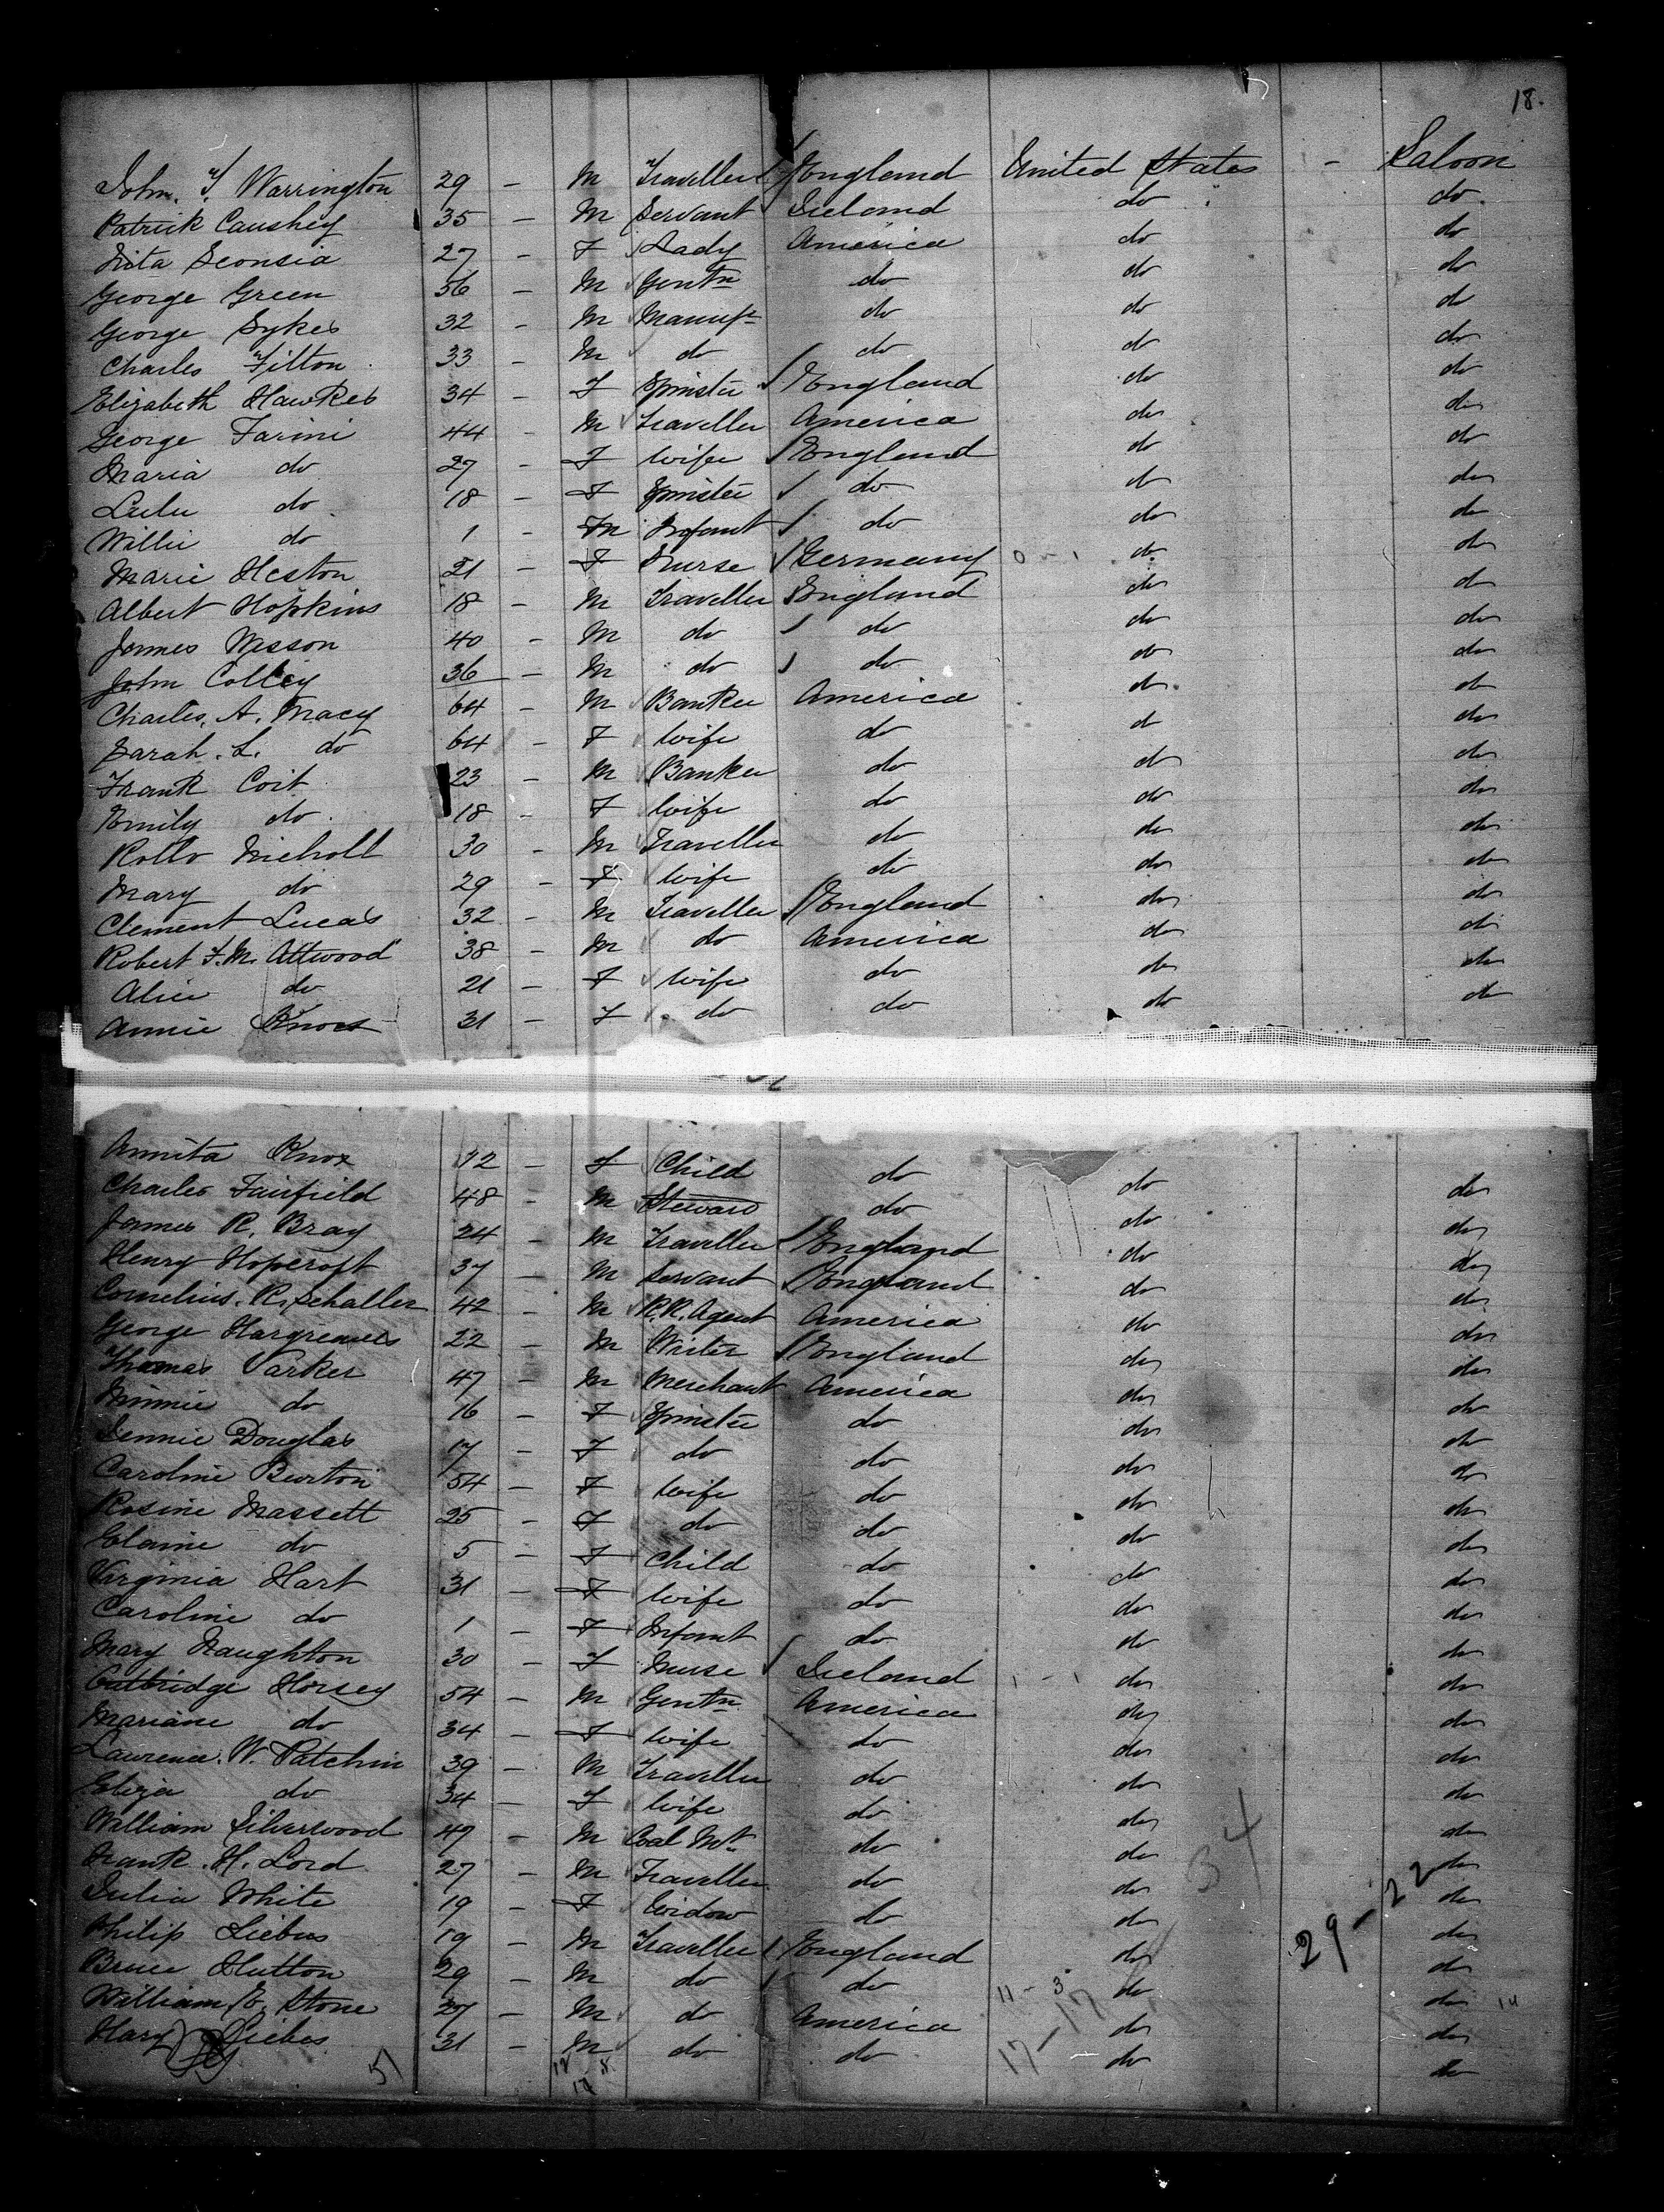 18.
John. T. Warrington 29 - M Traveller England United States - Saloon
Patrick Caushey 35 - M Servant Ireland do do
Lita Seonsia 27 - F Lady America do do
George Green 56 - M Gentn do do do
George Sykes 32 - M Manufr do do do
Charles Filton 33 - M do do do do
Elizabeth Hawkes 34 - F Spinster England do do
George Farini 44 - M Traveller America do do
Maria do 27 - F Wife England do do
Lulu do 18 - F Spinster do do do
Willie do 1 - M Infant do do do
Marie Heston 21 - F Nurse Germany 0 - 1 do do
Albert Hopkins 18 - M Traveller England do do
James Wesson 40 - M do do do do
John Colley 36 - M do do do do
Charles. A. Macy 64 - M Banker America do do
Sarah. L. do 64 - F Wife do do do
Frank Coit 23 - M Banker do do do
Emily do 18 - F Wife do do do
Rollo Nicholl 30 - M Traveller do do do
Mary do 29 - F Wife do do do
Clement Lucas 32 - M Traveller England do do
Robert F. M. Attwood 38 - M do America do do
Alice do 21 - F Wife do do do
Annie Knox 31 - F do do do do
Annita Knox 12 - F Child do do do
Charles Fairfield 48 - M Steward do do do
James R. Bray 24 - M Traveller England do do
Henry Hopcroft 37 - M Servant England do do
Cornelius. R. Schaller 42 - M R.R. Agent America do do
George Hargreaves 22 - M Writer England do do
Thomas Parker 47 - M Merchant America do do
Minnie do 16 - F Spinster do do do
Jennie Douglas 17 - F do do do do
Caroline Burton 54 - F Wife do do do
Rosine Massett 25 - F do do do do
Elaine do 5 - F Child do do do
Virginia Hart 31 - F Wife do do do
Caroline do 1 - F Infant do do do
Mary Naughton 30 - F Nurse Ireland 1 - 1 do do
Outbridge Horsey 54 - M Gentn America do do
Mariane do 34 - F Wife do do do
Lawrence. W. Patchin 39 - M Traveller do do do
Eliza do 34 - F Wife do do do
William Silverwood 49 - M Coal Mt do do do
Frank. H. Lord 27 - M Traveller do do do
Julia White 19 - F Widow do do do
Philip Liebus 19 - M Traveller England do do
Bruce Hutton 29 - M do do 11 - 3 do do
William E. Stone 27 - M do America do do
Harry Liebes 31 - M do do do do
34
29-22
17-17
51